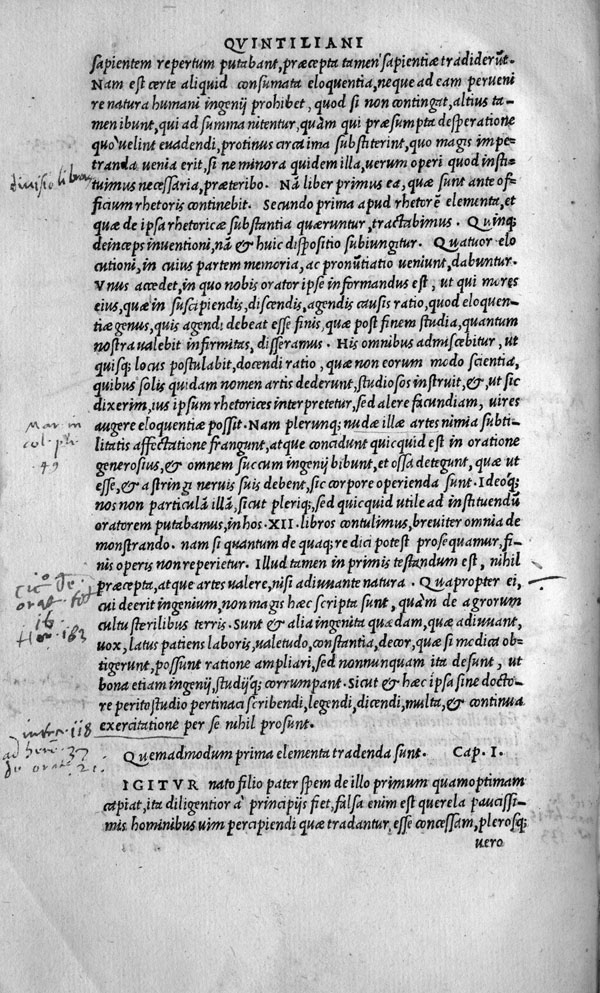 QVINTILIANI
sapientem repertum putabant, præcepta tamen sapientiæ tradiderũt.
Nam est certe aliquid consumata eloquentia, neque ad eam perueni
re natura humani ingenij prohibet, quod si non contingat, altius ta-
men ibunt, qui ad summa nitentur, quàm qui præsumpta desperatione
quo uelint euadendi, protinus circa ima substiterint, quo magis impe-
tranda uenia erit, si ne minora quidem illa, uerum operi quod insti-
diuisio libror
tuimus necessaria, præteribo. Nã liber primus ea, quæ sunt ante of-
ficium rhetoris continebit. Secundo prima apud rhetorẽ elementa, et
quæ de ipsa rhetoricæ substantia quæruntur, tractabimus. Quinq;
deinceps inuentioni, nã & huic dispositio subiungitur. Quatuor elo
cutioni, in cuius partem memoria, ac pronũtiatio ueniunt, dabuntur.
Vnus accedet, in quo nobis orator ipse informandus est, ut qui mores
eius, quæ in suscipiendis, discendis, agendis causis ratio, quod eloquen-
tiæ genus, quis agendi debeat esse finis, quæ post finem studia, quantum
nostra ualebit infirmitas, disseramus. His omnibus admiscebitur, ut
quisq; locus postulabit, docendi ratio, quæ non eorum modo scientia,
quibus solis quidam nomen artis dederunt, studiosos instruit, &, ut sic
dixerim, ius ipsum rhetorices interpretetur, sed alere facundiam, uires
augere eloquentiæ possit. Nam plerunq; nudæ illæ artes nimia subti-
litatis affectatione frangunt, atque concidunt quicquid est in oratione
49
generosius, & omnem succum ingenij bibunt, et ossa detegunt, quæ ut
esse, & astringi neruis suis debent, sic corpore operienda sunt. Ideoq;
nos non particulã illã, sicut pleriq;, sed quicquid utile ad instituendũ
oratorem putabamus, in hos .XII. libros contulimus, breuiter omnia de
monstrando. nam si quantum de quaq; re dici potest prosequamur, fi-
nis operis non reperietur. Illud tamen in primis testandum est, nihil
præcepta, atque artes ualere, nisi adiuuante natura. Quapropter ei,
cui deerit ingenium, non magis hæc scripta sunt, quàm de agrorum
cultu sterilibus terris. Sunt & alia ingenita quædam, quæ adiuuant,
uox, latus patiens laboris, ualetudo, constantia, decor, quæ si modica ob-
tigerunt, possunt ratione ampliari, sed nonnunquam ita desunt, ut
bona etiam ingenij, studijq; corrumpant. Sicut & hæc ipsa sine docto-
re perito studio pertinaci scribendi, legendi, dicendi, multa, & continua
exercitatione per se nihil prosunt.
Quemadmodum prima elementa tradenda sunt. Cap. I.
IGITVR nato filio pater spem de illo primum quam optimam
capiat, ita diligentior à principijs fiet, falsa enim est querela paucissi-
mis hominibus uim percipiendi quæ tradantur, esse concessam, plerosq;
uero